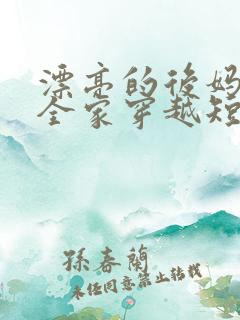 漂亮的后妈
全家穿越短
孫春蘭
未经同意禁止转载